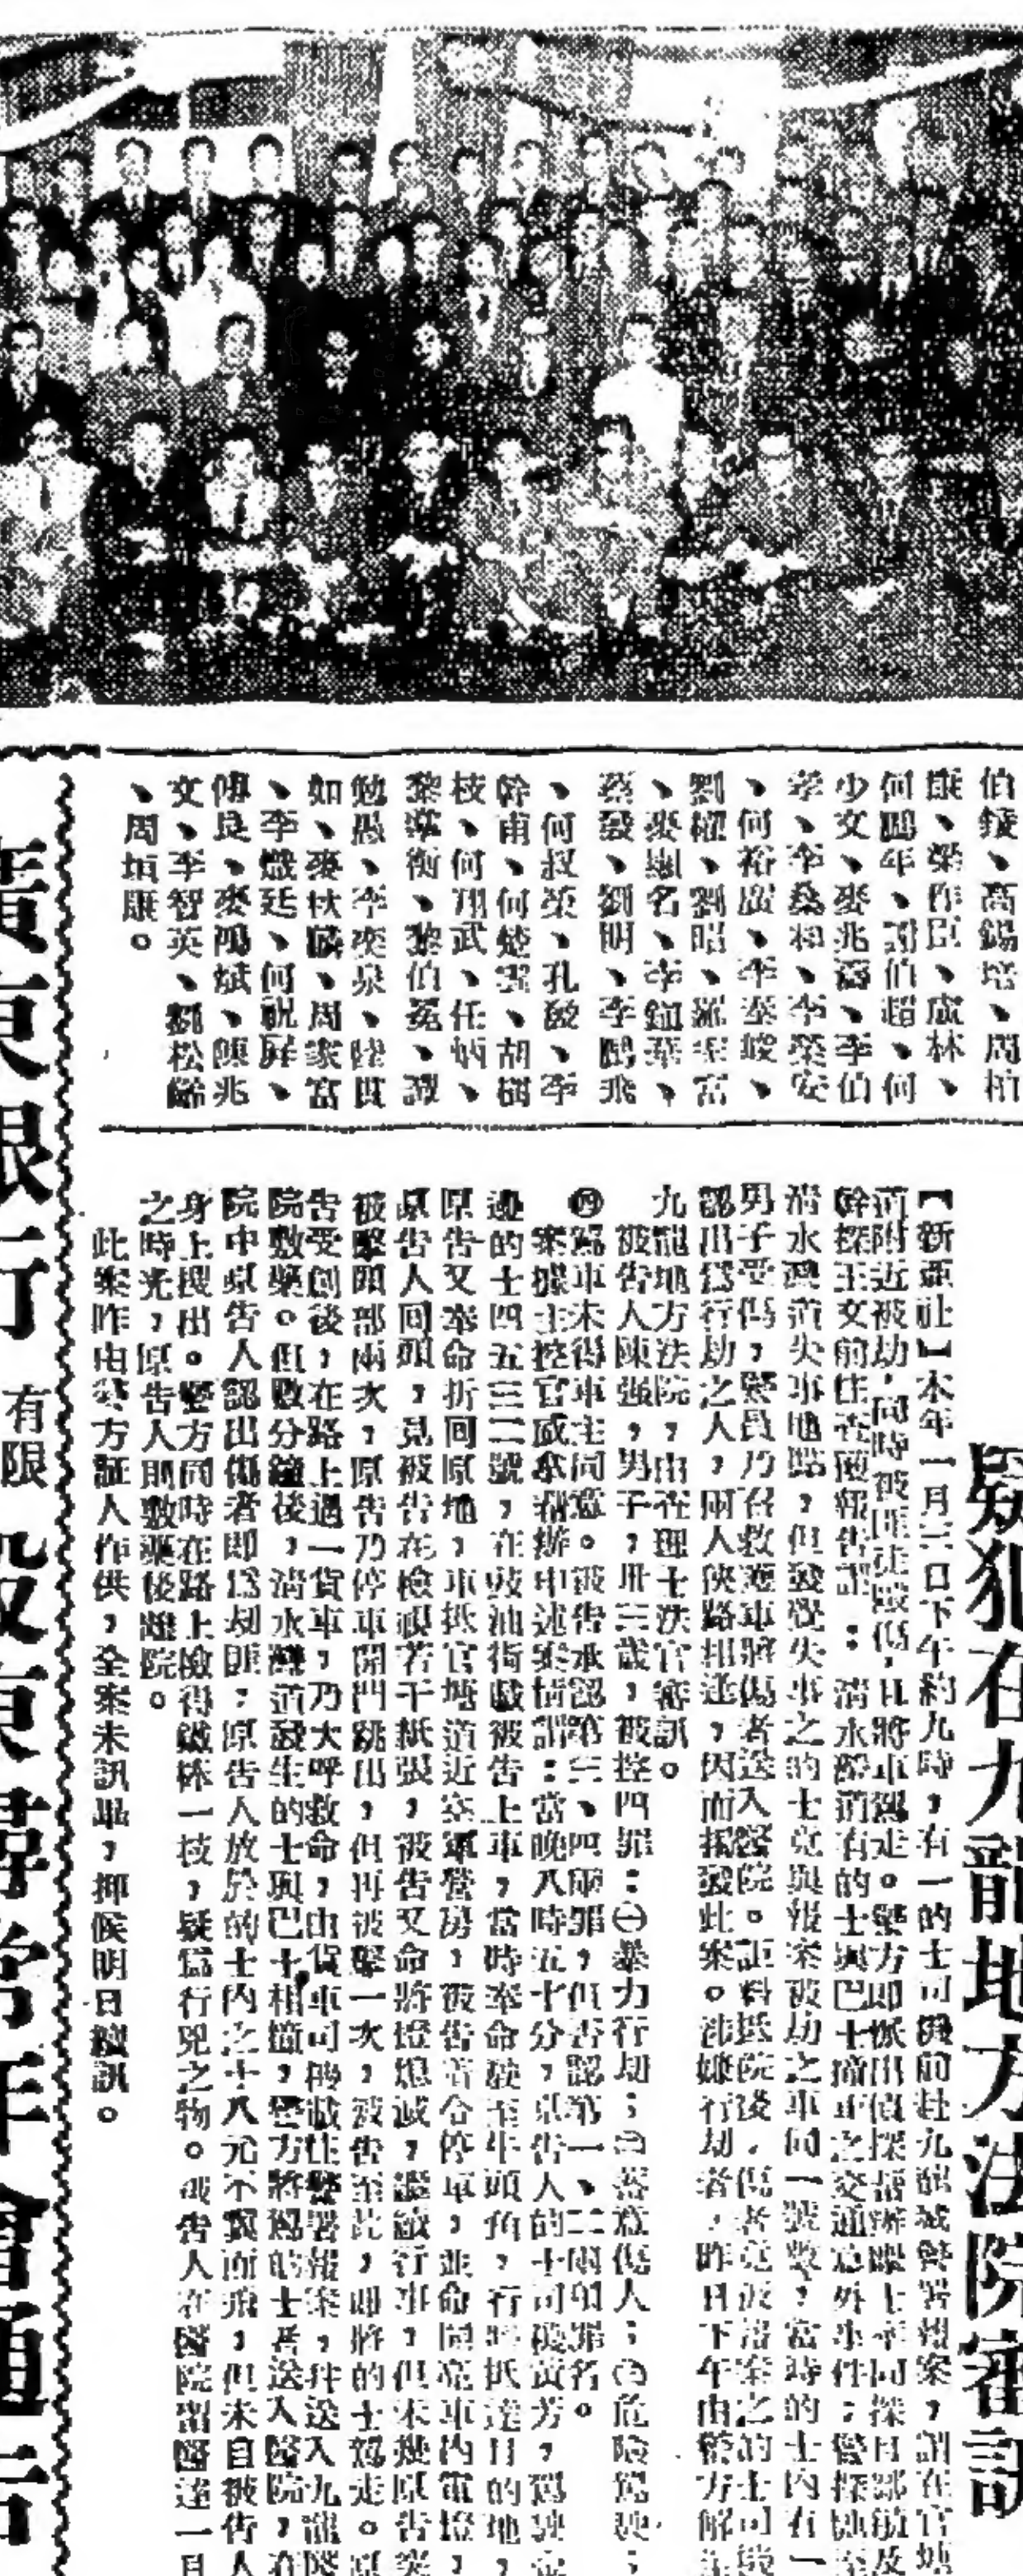 伯錢、高錫培、周柏
康、榮作民、盧林、
何鵬年、謝伯超、何
少文、麥兆壽、李伯
孝、李燊和、李榮安
、何裕廣、李奉峻、
劉耀、劉昭、羅富
、麥惠名、李鉅華、
蔡發、劉明、李鵬飛
、何叔榮、孔發、李
幹甫、何楚雲、胡樹
枝、何翔武、任炳、
黎澤衡、黎伯冕、譚
勉愚、李奕泉、陸貫
如、麥秋麟、周家富
、李熾廷、何祝屏、
傅良、麥鴻斌、陳兆
文、李智英、劉松齡
、周垣康。
疑犯在九龍地方法院審訊
【新亞社】本年一月三日下午約九時，有一的士司機前赴九龍城警署報案，謂在官塘
道附近被劫，同時被匪徒毆傷，且將車駕走。警方即派出偵探
幹探王文前往查報告謂：清水灣道有的士與巴士撞車之交通意外事件；警探
清水灣道失事地點，但發覺失事之的士竟與報案被劫之車同一號數，當時的士內有一
男子受傷，警員乃召救護車將傷者送入醫院。詎料抵院後，傷者竟被報案之的士司機
認出為行劫之人，兩人狹路相逢，因而揭發此案。涉嫌行劫者，昨日下午由警方解
九龍地方法院，由 理士法官審訊。
被告人陳強，男子，卅三歲，被控四罪：㊀暴力行劫；㊁蓄意傷人；㊂危險駕駛；
㊃駕車未得車主同意。被告承認第三、四兩罪，但否認第一、二兩項罪名。
案據主控官 幫辦申述案情謂：當晚八時五十分，原告人的士司機黃芳，駕駛
的士四五三二號，在豉油街載被告上車，當時奉命駛至牛頭角，行將抵達目的地，
原告又奉命折回原地，車抵官塘道近交軍營房，被告命令停車，並命同亮車內電燈，
原告人回頭，見被告在檢視若干紙張，被告又命將燈熄滅，繼續行事，但未幾原告突
被擊頭部兩次，原告乃停車開門跳出，但再被擊一次，被告至此，即將的士駕走。原
告受創後，在路上遇一貨車，乃大呼救命，由貨車司機載往警署報案，并送入九龍醫
院敷藥。但數分鐘後，清水灣道發生的士與巴士相撞，警方將駕的士者送入醫院，在
院中原告人認出傷者即為劫匪，原告人放於的士內之十八元不翼而飛，但未自被告人
身上搜出。警方同時在路上檢得鐵棒一枝，疑為行兇之物。被告人在醫院留醫達一月
之時光，原告人則敷藥後離院。
此案昨由控方証人作供，全案未訊畢，押候明日續訊。
廣東銀行有限公司股東尋常年會通告